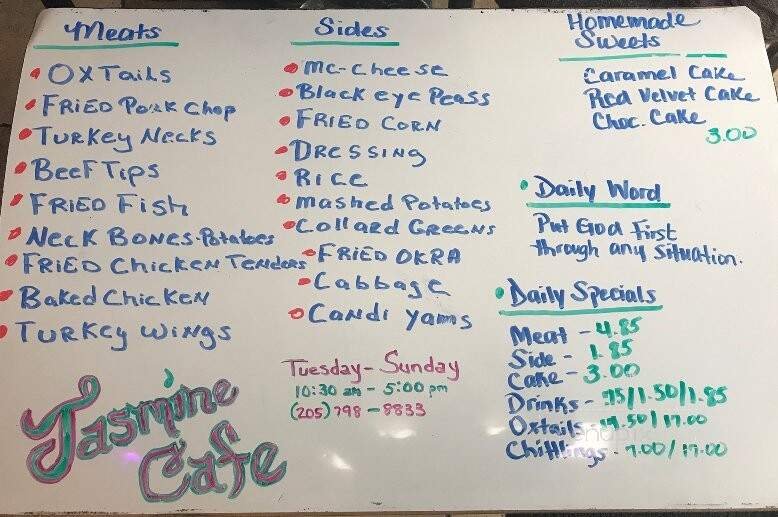 Meats
OXTails
FRIED PORK Chop
TURKey Necks
BeeF Tips
FRIED Fish
Neck Bones-Potatoes
FRIED ChickeN TeNders
Baked ChickeN
TURKey WiNgs
Jasmine
Cafe
Sides
Mc-Cheese
Black eye Peass
FRIED CORN
DRessiNg
Rice
Mashed Potatoes
Collard GreeNs
FRIED OKRA
Cabbage
Candi Yams
Tuesday - Sunday
10:30 am - 5:00 pm
(205) 798 - 8833
Homemade
Sweets
Caramel Cake
Red Velvet Cake
Choc. Cake
3.00
Daily Word
Put God First
through any Situation.
Daily Specials
Meat - 4.85
Side - 1.85
Cake - 3.00
Drinks - .75/1.50/1.85
Oxtails /17.00
Chittlings - 7.00/17.00